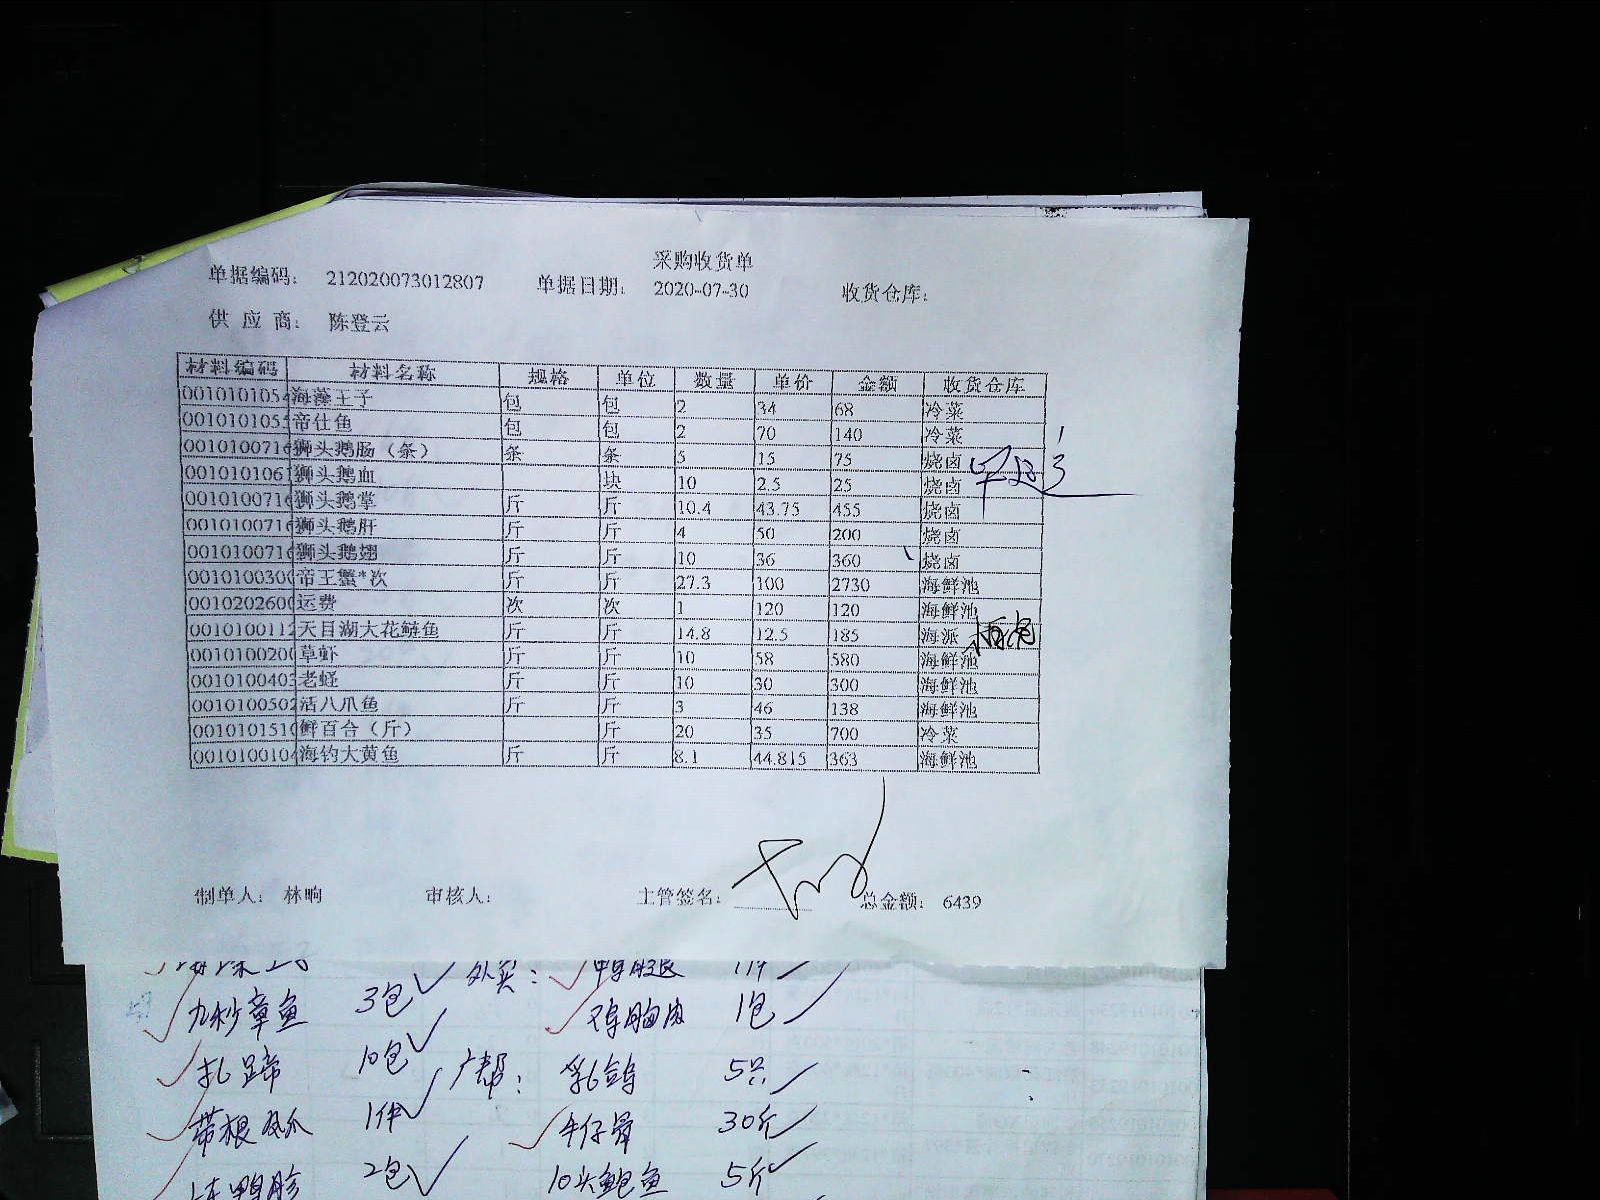 采购收货单
单据编码: 212020073012807 单据日期: 2020-07-30 收货仓库:
供应商: 陈登云
材料编码 材料名称 规格 单位 数量 单价 金额 收货仓库
0010101054 海藻王子 包 包 2 34 68 冷菜
0010101055 帝仕鱼 包 包 2 70 140 冷菜
001010071 狮头鹅肠（条） 条 条 5 15 75 烧卤
001010106 狮头鹅血 块 10 2.5 25 烧卤
001010071 狮头鹅掌 斤 斤 10.4 43.75 455 烧卤
001010071 狮头鹅肝 斤 斤 4 50 200 烧卤
001010071 狮头鹅翅 斤 斤 10 36 360 烧卤
001010030 帝王蟹*次 斤 斤 27.3 100 2730 海鲜池
001020260 运费 次 次 1 120 120 海鲜池
001010011 天目湖大花鲢鱼 斤 斤 14.8 12.5 185 海派
001010020 草虾 斤 斤 10 58 580 海鲜池
001010040 老蛏 斤 斤 10 30 300 海鲜池
001010050 活八爪鱼 斤 斤 3 46 138 海鲜池
001010151 鲜百合（斤） 斤 20 35 700 冷菜
001010010 海钓大黄鱼 斤 斤 8.1 44.815 363 海鲜池
制单人: 林晌 审核人: 主管签名: 总金额: 6439
外卖:
章鱼 3包 鸡胸肉 1包
扎蹄 10包 广帮: 乳鸽 5只
带根凤爪 1件 牛仔骨 30斤
2包 10头鲍鱼 5斤